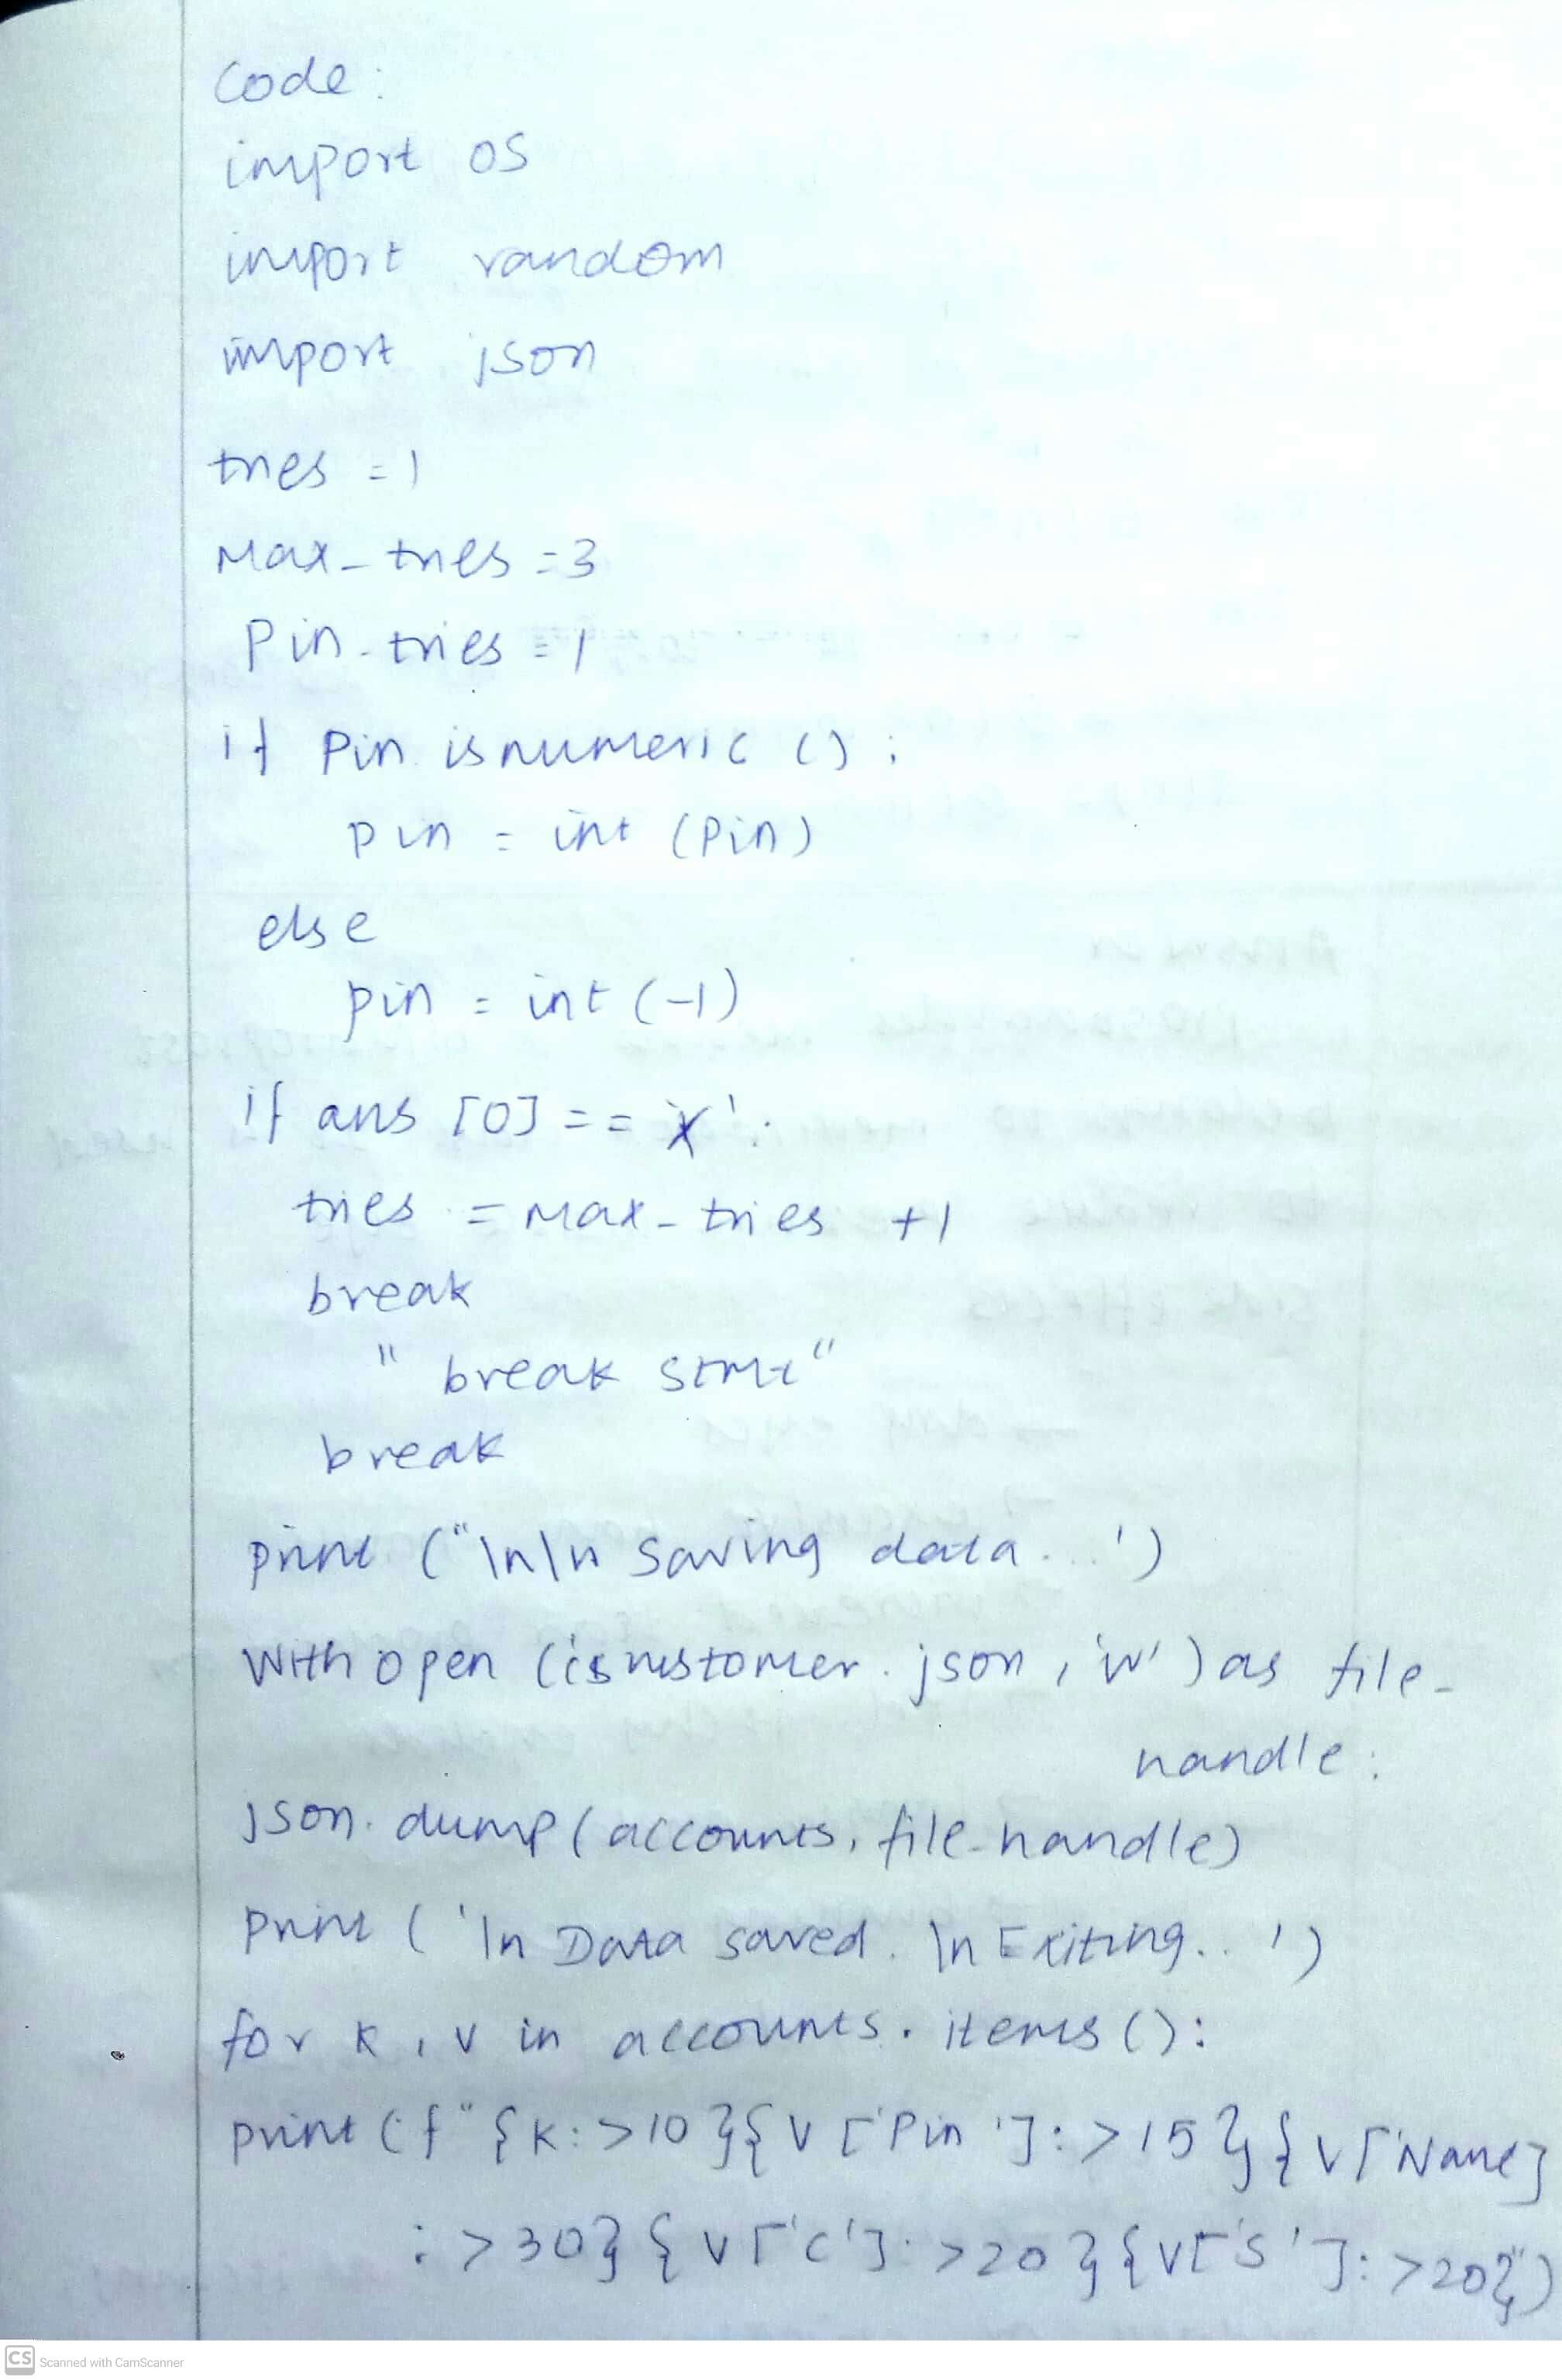 Code:
import os
import random
import json
tries = 1
Max_tries = 3
Pin_tries = 1
if Pin isnumeric ():
pin = int (Pin)
else
pin = int (-1)
if ans [0] == 'x':
tries = Max_tries +1
break
" break stmt"
break
print ("\n\n Saving data...')
With open ( . json , 'w' ) as file_
handle:
json. dump (accounts, file_handle)
print ( '\n Data saved. \n Exiting.. ')
for k, v in accounts. items ():
print (f" {k:>10}{v ['Pin']:>15}{v['Name]
:>30}{v['c']:>20}{v['s']:>20}")
CS Scanned with CamScanner